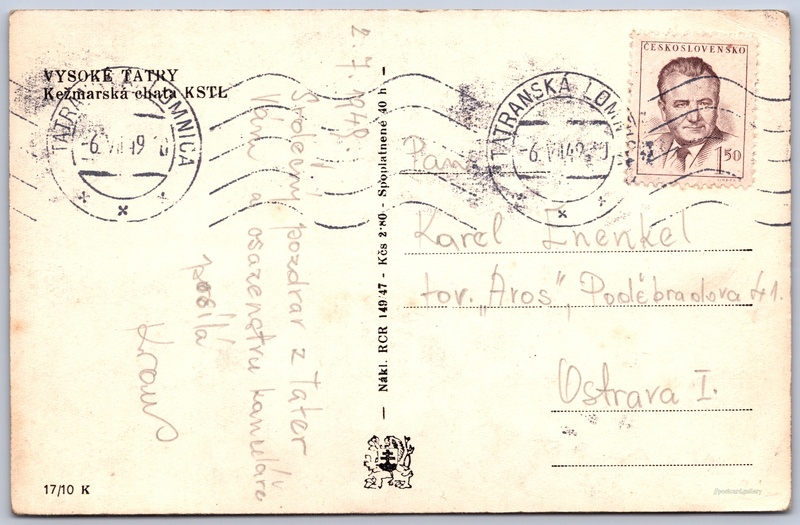 VYSOKÉ TATRY
Kežmarská chata KSTL
2.7.1949.
Srdečný pozdrav z Tater
Vám a osazenstvu kanceláře
posílá
Kraus
17/10 K
— Nákl. RCR 149/47 - Kčs 2·80 - Spoplatnené 40 h —
TATRANSKÁ LOMNICA
-6.VII.49
TATRANSKÁ LOMNICA
-6.VII.49
ČESKOSLOVENSKO
1.50
Pan
Karel Enenkel
tov. „Aros", Poděbradova 41.
Ostrava I.